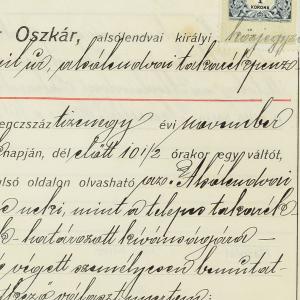 1
KORONA
r Oszkár, alsólendvai királyi, közjegyző
úr, alsólendvai takarékpénz
lenczszáz tizenegy évi november
napján, dél előtt 10 1/2 órakor egy váltót,
ulsó oldalgn olvasható Alsólendvai
neki, mint a telepes takarék
k határozott kívánságára –
végett személyesen bemutat-
választ nyertem: